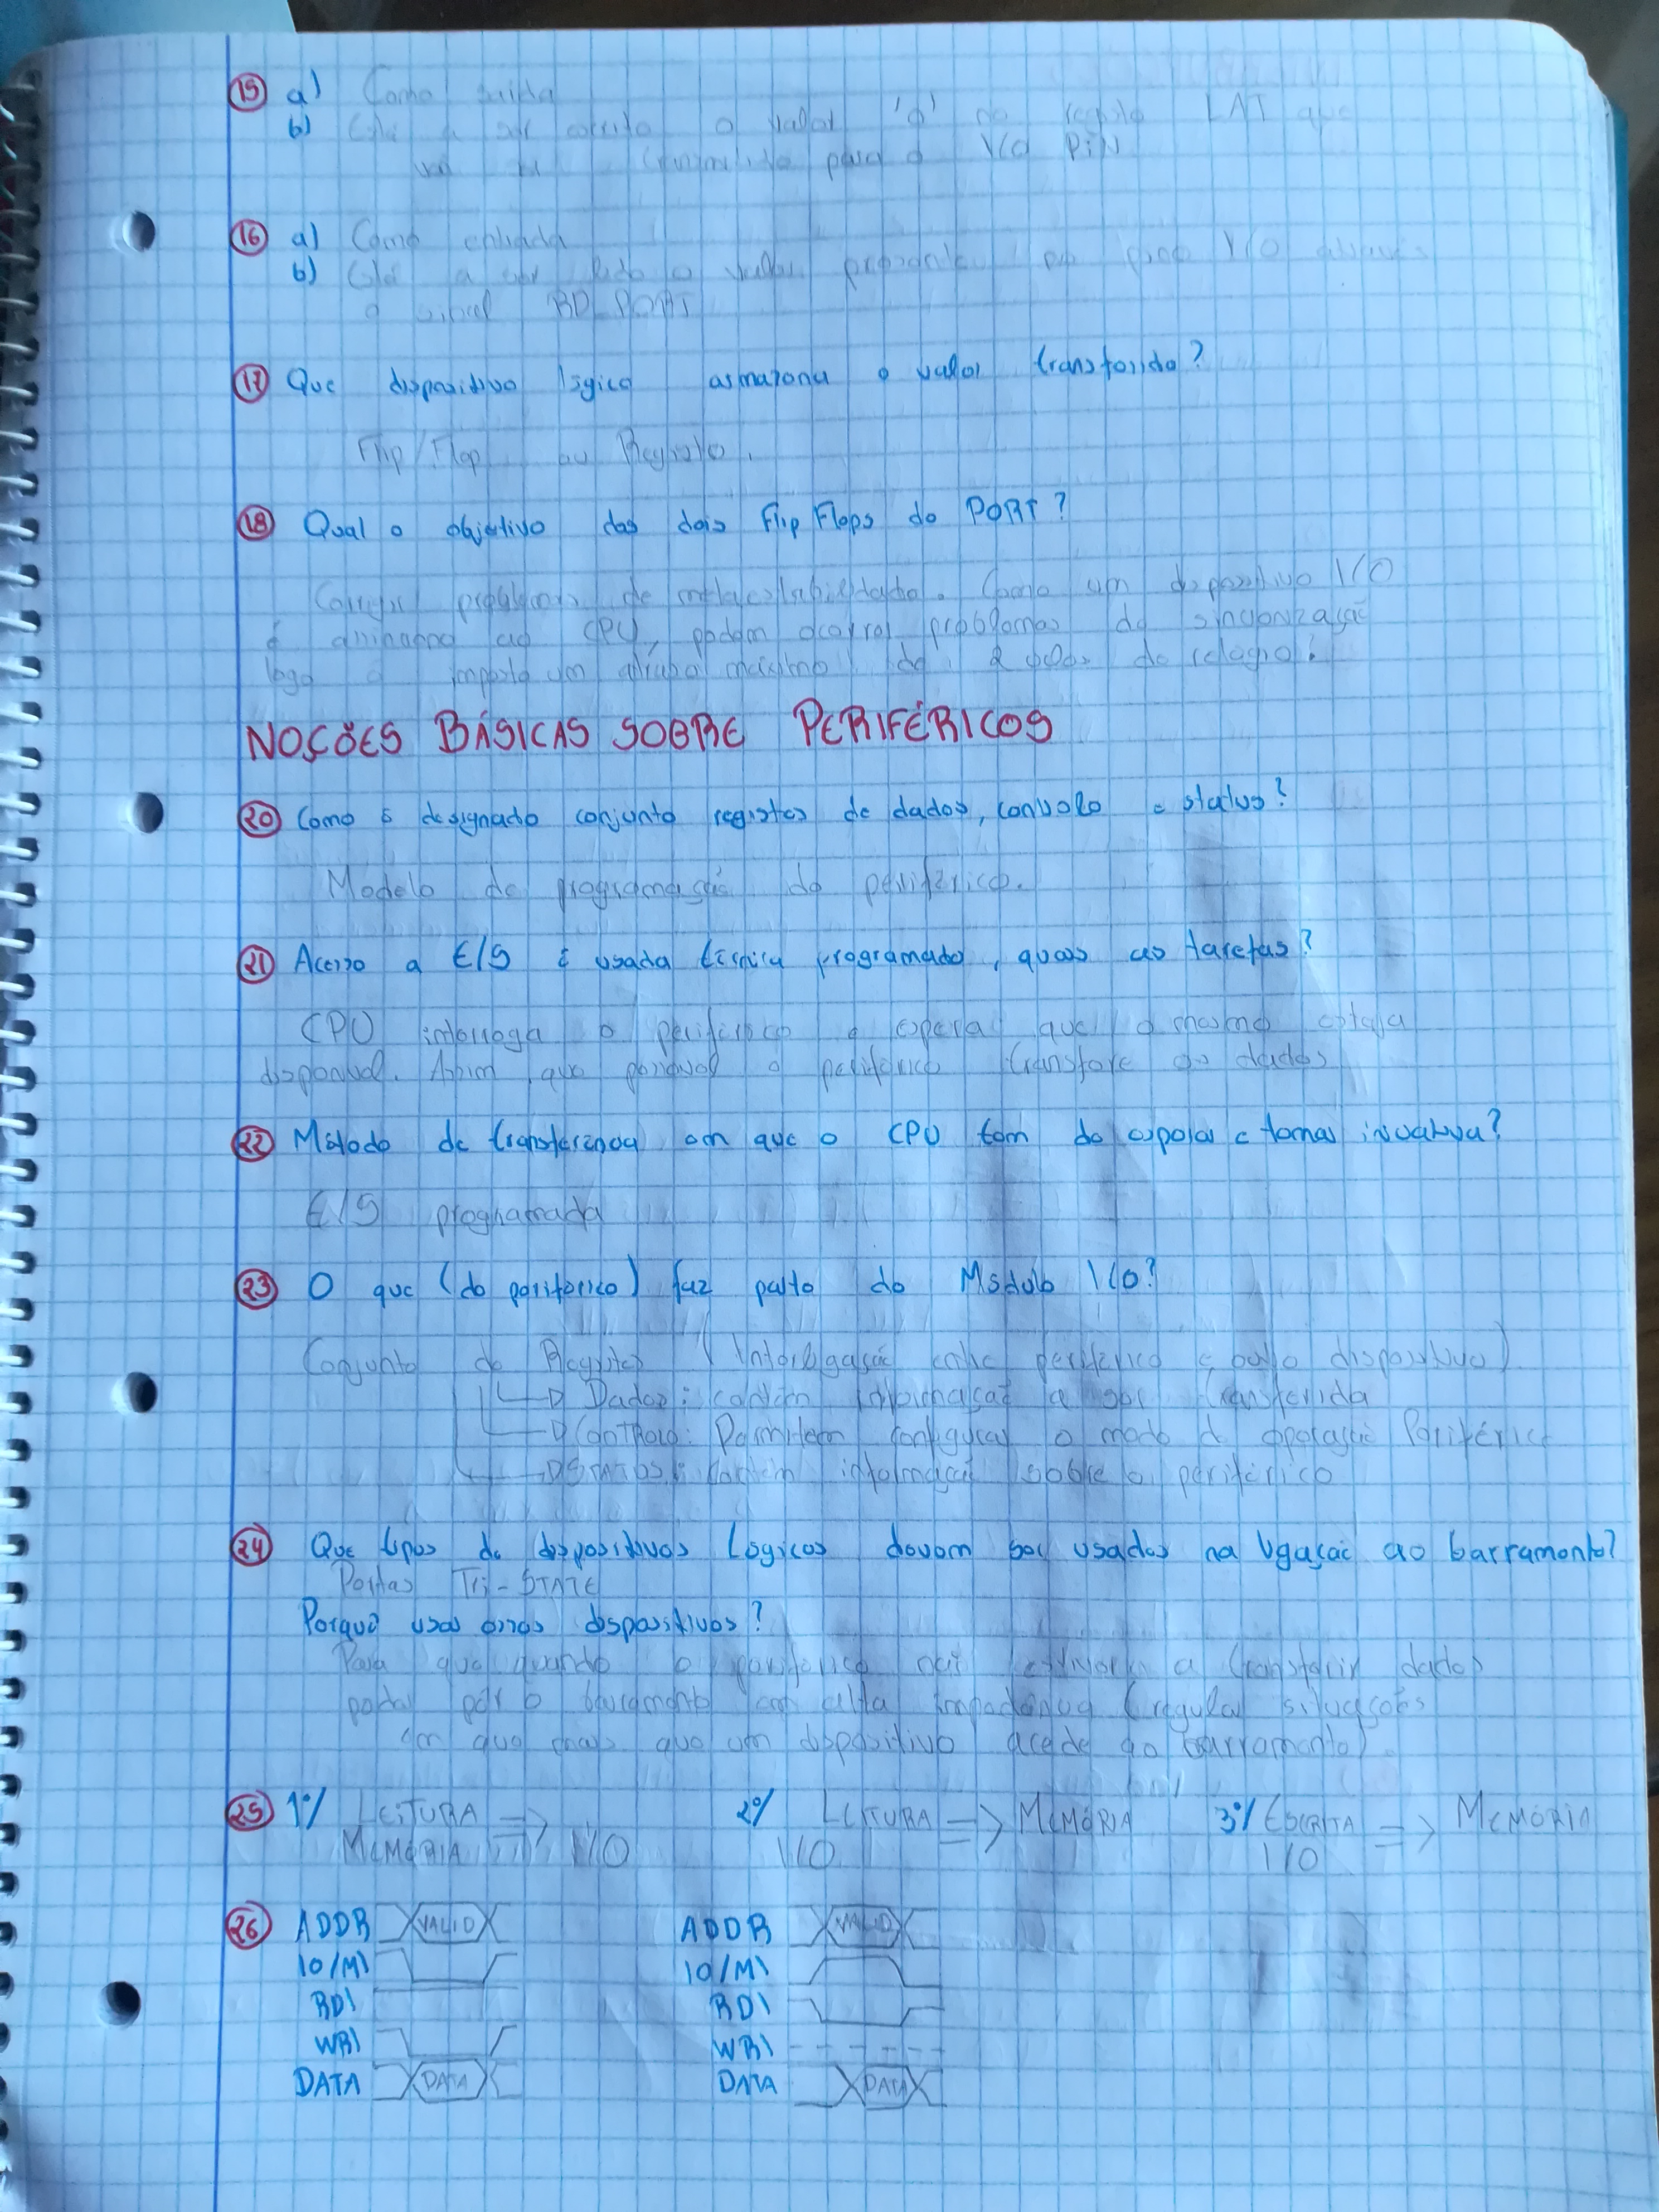 15 a) Como saida
b) Está a ser escrito o valor '0' no registo LAT que
vai ser transmitido para o I/O PIN
16 a) Como entrada
b) Está a ser lido o valor presente I/O através
o sinal RD_PORT
17 Que dispositivo lógico asmazena o valor transferido?
Flip/Flop ou Registo.
18 Qual o objetivo dos dois Flip Flops do PORT?
Corrigir problemas de metaestabilidade. Como um dispositivo I/O
é ao CPU, podem ocorrer problemas de sincronização
logo é imposto um atraso máximo de 2 ciclos de relogio.
NOÇÕES BÁSICAS SOBRE PERIFÉRICOS
20 Como é designado conjunto registos de dados, controlo e status?
Modelo de programação do periférico.
21 Acesso a E/S é usada técnica programado, quais as tarefas?
CPU interroga o periférico e espera que o mesmo esteja
disponivel. Assim que possivel o periférico transfere os dados
22 Método de transferência em que o CPU tem de esperar e tomar iniciativa?
E/S programada
23 O que (do periférico) faz parte do Módulo I/O?
Conjunto de Registos (Interligação entre periférico e outro dispositivo)
Dados: contém informação a ser transferida
CONTROLO: Permitem configurar o modo d operação Periférico
STATUS: Contém informação sobre o periférico
24 Que tipos de dispositivos Lógicos devem ser usados na ligação ao barramento?
Portas Tri-STATE
Porquê usar esses dispositivos?
Para que quando o periférico não estiver a transferir dados
poder pôr o barramento em alta impedância (regular situações
em que mais que um dispositivo acede ao barramento).
25 1º/ LEITURA => 2º/ LEITURA => MEMÓRIA 3º/ ESCRITA => MEMÓRIA
MEMÓRIA I/O I/O I/O
26 ADDR VALID ADDR VALID
IO/M\ IO/M\
RD\ RD\
WR\ WR\
DATA DATA DATA DATA